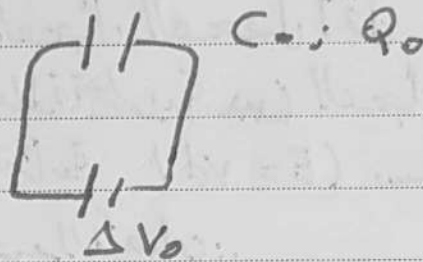 C₀; Q₀
Δ V₀